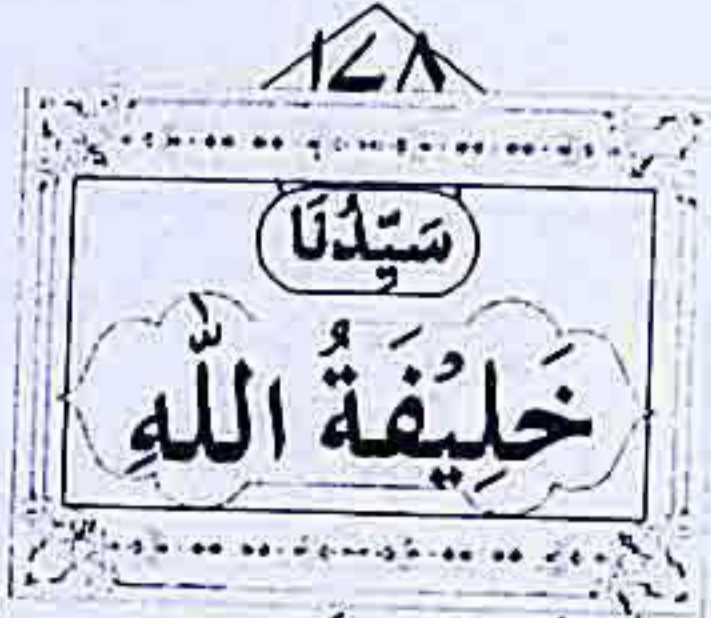 ۱۷۸
سَيِّدُنَا
خَلِيْفَةُ اللّٰهِ